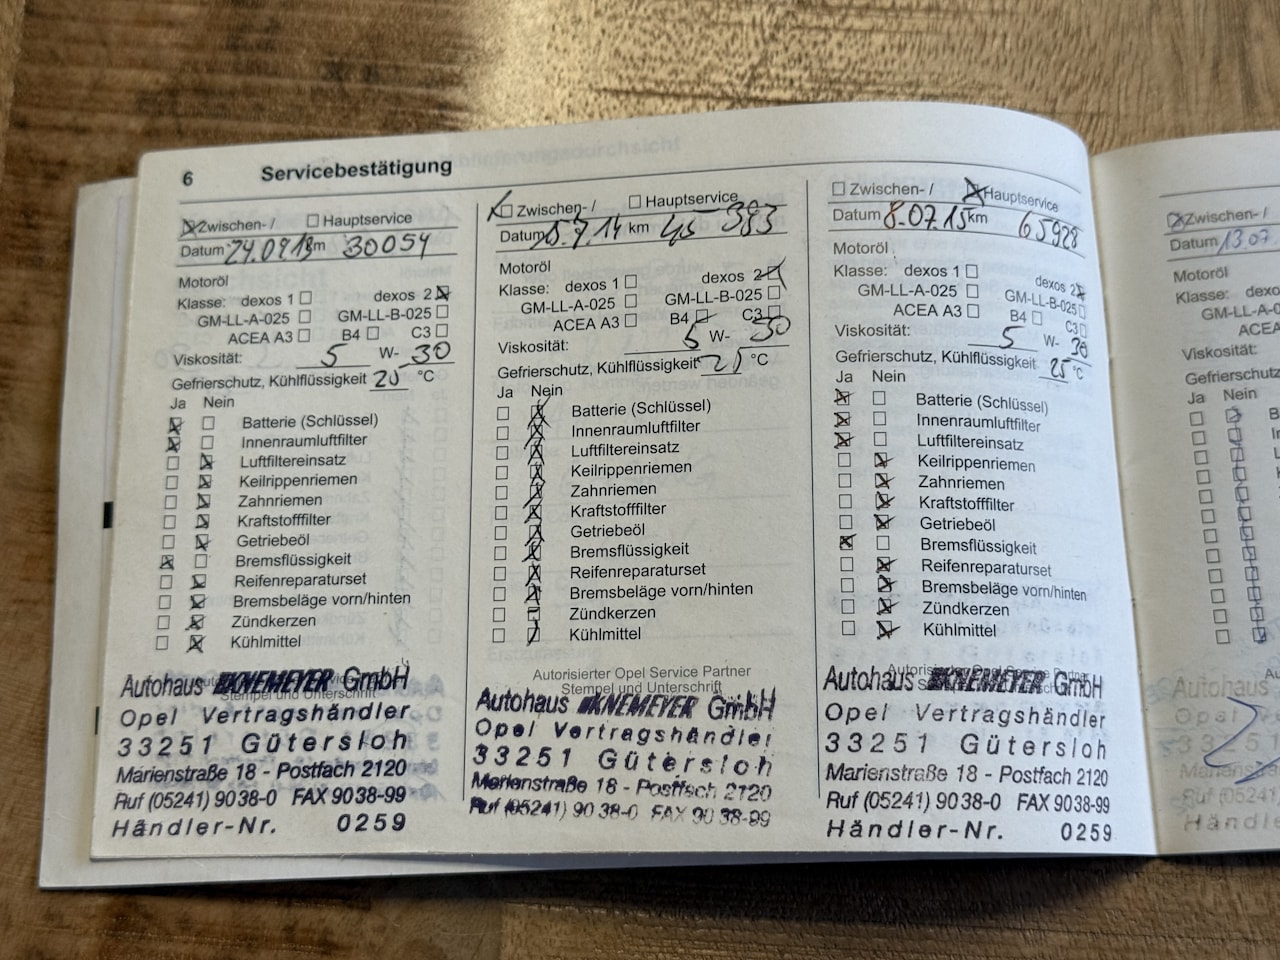 6 Servicebestätigung
Zwischen- / Hauptservice
Datum 24.09.13 km 30054
Motoröl
Klasse: dexos 1 dexos 2
GM-LL-A-025 GM-LL-B-025
ACEA A3 B4 C3
Viskosität: 5 W- 30
Gefrierschutz, Kühlflüssigkeit °C
Ja Nein
Batterie (Schlüssel)
Innenraumluftfilter
Luftfiltereinsatz
Keilrippenriemen
Zahnriemen
Kraftstofffilter
Getriebeöl
Bremsflüssigkeit
Reifenreparaturset
Bremsbeläge vorn/hinten
Zündkerzen
Kühlmittel
Stempel und Unterschrift
Autohaus KNEMEYER GmbH
Opel Vertragshändler
33251 Gütersloh
Marienstraße 18 - Postfach 2120
Ruf (05241) 9038-0 FAX 9038-99
Händler-Nr. 0259
Zwischen- / Hauptservice
Datum 7.14 km 45 383
Motoröl
Klasse: dexos 1 dexos 2
GM-LL-A-025 GM-LL-B-025
ACEA A3 B4 C3
Viskosität: 5 W- 30
Gefrierschutz, Kühlflüssigkeit °C
Ja Nein
Batterie (Schlüssel)
Innenraumluftfilter
Luftfiltereinsatz
Keilrippenriemen
Zahnriemen
Kraftstofffilter
Getriebeöl
Bremsflüssigkeit
Reifenreparaturset
Bremsbeläge vorn/hinten
Zündkerzen
Kühlmittel
Autorisierter Opel Service Partner
Stempel und Unterschrift
Autohaus KNEMEYER GmbH
Opel Vertragshändler
33251 Gütersloh
Marienstraße 18 - Postfach 2120
Ruf (05241) 9038-0 FAX 9038-99
Zwischen- / Hauptservice
Datum 8.07.15 km 65928
Motoröl
Klasse: dexos 1 dexos 2
GM-LL-A-025 GM-LL-B-025
ACEA A3 B4 C3
Viskosität: 5 W- 30
Gefrierschutz, Kühlflüssigkeit 25 °C
Ja Nein
Batterie (Schlüssel)
Innenraumluftfilter
Luftfiltereinsatz
Keilrippenriemen
Zahnriemen
Kraftstofffilter
Getriebeöl
Bremsflüssigkeit
Reifenreparaturset
Bremsbeläge vorn/hinten
Zündkerzen
Kühlmittel
Autorisierter Opel Service Partner
Autohaus KNEMEYER GmbH
Opel Vertragshändler
33251 Gütersloh
Marienstraße 18 - Postfach 2120
Ruf (05241) 9038-0 FAX 9038-99
Händler-Nr. 0259
Zwischen- /
Datum 13.07
Motoröl
Klasse:
GM-LL-A-0
ACEA
Viskosität:
Gefrierschutz
Ja Nein
Autohaus
Opel
3325
Marienst
Ruf (05241)
Händl